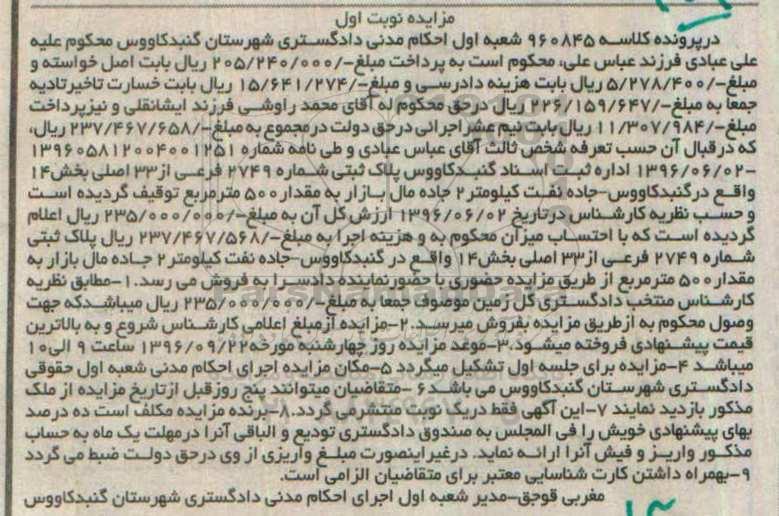 مزایده نوبت اول
درپرونده کلاسه ۹۶۰۸۴۵ شعبه اول احکام مدنی دادگستری شهرستان گنبدکاووس محکوم علیه
علی عبادی فرزند عباس علی، محکوم است به پرداخت مبلغ-/۲۰۵/۲۴۰/۰۰۰ ریال بابت اصل خواسته و
مبلغ-/۵/۲۷۸/۴۰۰ ریال بابت هزینه دادرسی و مبلغ-/۱۵/۶۴۱/۲۷۴ ریال بابت خسارت تاخیرتادیه
جمعا به مبلغ-/۲۲۶/۱۵۹/۶۴۷ ریال درحق محکوم له آقای محمد راوشی فرزند ایشانقلی و نیزپرداخت
مبلغ-/۱۱/۳۰۷/۹۸۴ ریال بابت نیم عشراجرائی درحق دولت درمجموع به مبلغ-/۲۳۷/۴۶۷/۶۵۸ ریال،
که درقبال آن حسب تعرفه شخص ثالث آقای عباس عبادی و طی نامه شماره ۱۳۹۶۰۵۸۱۲۰۰۴۰۰۱۲۵۱
-۱۳۹۶/۰۶/۰۲ اداره ثبت اسناد گنبدکاووس پلاک ثبتی شماره ۲۷۴۹ فرعی از۳۳ اصلی بخش۱۴
واقع درگنبدکاووس-جاده نفت کیلومتر۲ جاده مال بازار به مقدار۵۰۰ مترمربع توقیف گردیده است
و حسب نظریه کارشناس درتاریخ ۱۳۹۶/۰۶/۰۲ ارزش کل آن به مبلغ-/۲۳۵/۰۰۰/۰۰۰ ریال اعلام
گردیده است که با احتساب میزان محکوم به و هزینه اجرا به مبلغ-/۲۳۷/۴۶۷/۵۶۸ ریال پلاک ثبتی
شماره ۲۷۴۹ فرعی از۳۳ اصلی بخش۱۴ واقع در گنبدکاووس-جاده نفت کیلومتر۲ جاده مال بازار به
مقدار۵۰۰ مترمربع از طریق مزایده حضوری با حضورنماینده دادسرا به فروش می رسد.۱-مطابق نظریه
کارشناس منتخب دادگستری کل زمین موصوف جمعا به مبلغ-/۲۳۵/۰۰۰/۰۰۰ ریال میباشدکه جهت
وصول محکوم به ازطریق مزایده بفروش میرسد.۲-مزایده ازمبلغ اعلامی کارشناس شروع و به بالاترین
قیمت پیشنهادی فروخته میشود.۳-موعد مزایده روز چهارشنبه مورخه۱۳۹۶/۰۹/۲۲ ساعت ۹ الی۱۰
میباشد ۴-مزایده برای جلسه اول تشکیل میگردد ۵-مکان مزایده اجرای احکام مدنی شعبه اول حقوقی
دادگستری شهرستان گنبدکاووس می باشد۶ -متقاضیان میتوانند پنج روزقبل ازتاریخ مزایده از ملک
مذکور بازدید نمایند ۷-این آگهی فقط دریک نوبت منتشرمی گردد.۸-برنده مزایده مکلف است ده درصد
بهای پیشنهادی خویش را فی المجلس به صندوق دادگستری تودیع و الباقی آنرا درمهلت یک ماه به حساب
مذکور واریز و فیش آنرا ارائه نماید. درغیراینصورت مبلغ واریزی از وی درحق دولت ضبط می گردد
۹-بهمراه داشتن کارت شناسایی معتبر برای متقاضیان الزامی است.
مغربی قوجق-مدیر شعبه اول اجرای احکام مدنی دادگستری شهرستان گنبدکاووس